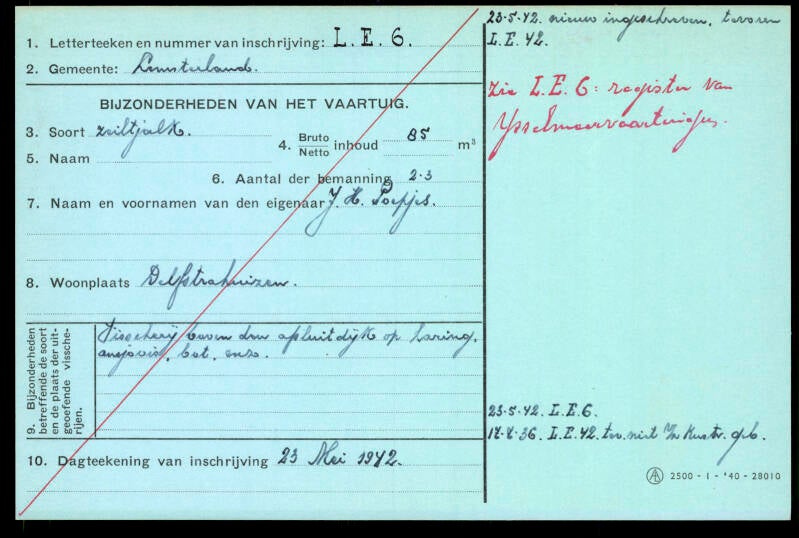 1. Letterteeken en nummer van inschrijving: L.E.6.
2. Gemeente: Lemsterland.
BIJZONDERHEDEN VAN HET VAARTUIG.
3. Soort zeiltjalk.
4. Bruto Netto inhoud 85 m³
5. Naam
6. Aantal der bemanning 2-3
7. Naam en voornamen van den eigenaar J. H. Poepjes.
8. Woonplaats Delfstrahuizen.
9. Bijzonderheden
betreffende de soort
en de plaats der uit-
geoefende vissche-
rijen.
Visscherij boven den afsluitdijk op haring,
ansjovis, bot, enz.
10. Dagteekening van inschrijving 23 Mei 1942.
23-5-42. nieuw ingeschreven, tevoren
L.E. 42.
Zie L.E. 6: register van
Ysselmeervaartuigen.
23-5-42. L.E.6.
L.E. 42.
2500 - I - '40 - 28010